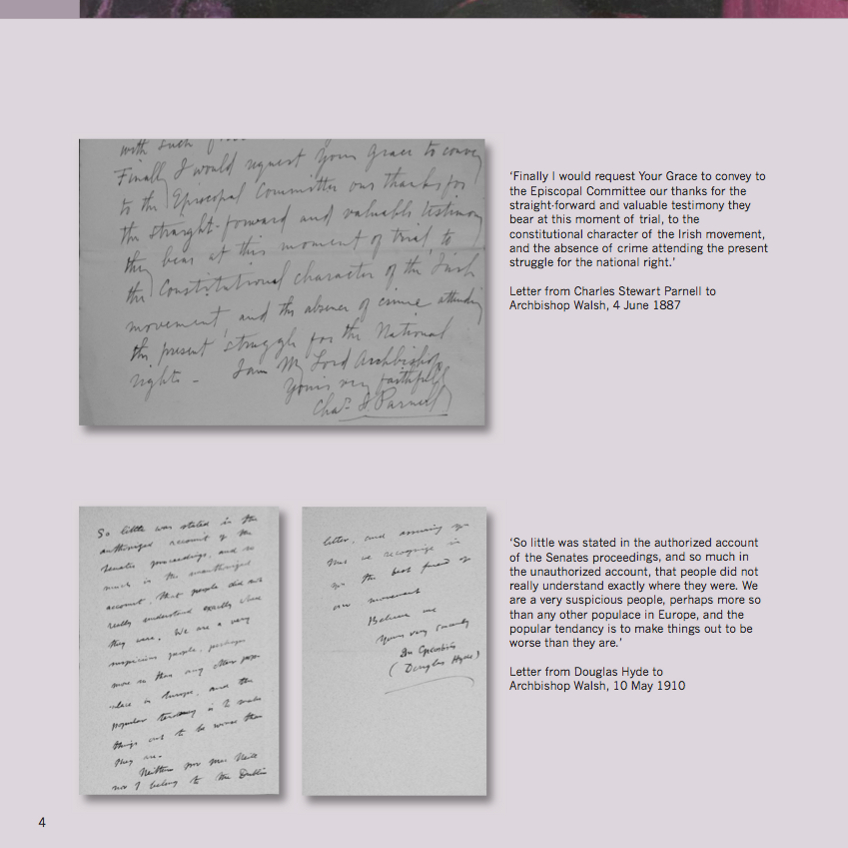 with such
Finally I would request Your Grace to convey
to the Episcopal Committee our thanks for
the straight-forward and valuable testimony
they bear at this moment of trial, to
the Constitutional character of the Irish
movement and the absence of crime attending
the present struggle for the National
right. – I am My Lord Archbishop
Yours very faithfully
Chas. S Parnell
'Finally I would request Your Grace to convey to
the Episcopal Committee our thanks for the
straight-forward and valuable testimony they
bear at this moment of trial, to the
constitutional character of the Irish movement,
and the absence of crime attending the present
struggle for the national right.'
Letter from Charles Stewart Parnell to
Archbishop Walsh, 4 June 1887
So little was stated in the
authorized account of the
Senates proceedings, and so
much in the unauthorized
account, that people did not
really understand exactly where
they were. We are a very
suspicious people, perhaps
more so than any other popu-
-lace in Europe, and the
popular tendency is to make
things out to be worse than
they are.
Neither nor
nor I belong to the Dublin
letter, and assuring you
that we recognize in
you the best friend of
our movement
Believe me
Yours very sincerely
(Douglas Hyde)
'So little was stated in the authorized account
of the Senates proceedings, and so much in
the unauthorized account, that people did not
really understand exactly where they were. We
are a very suspicious people, perhaps more so
than any other populace in Europe, and the
popular tendancy is to make things out to be
worse than they are.'
Letter from Douglas Hyde to
Archbishop Walsh, 10 May 1910
4